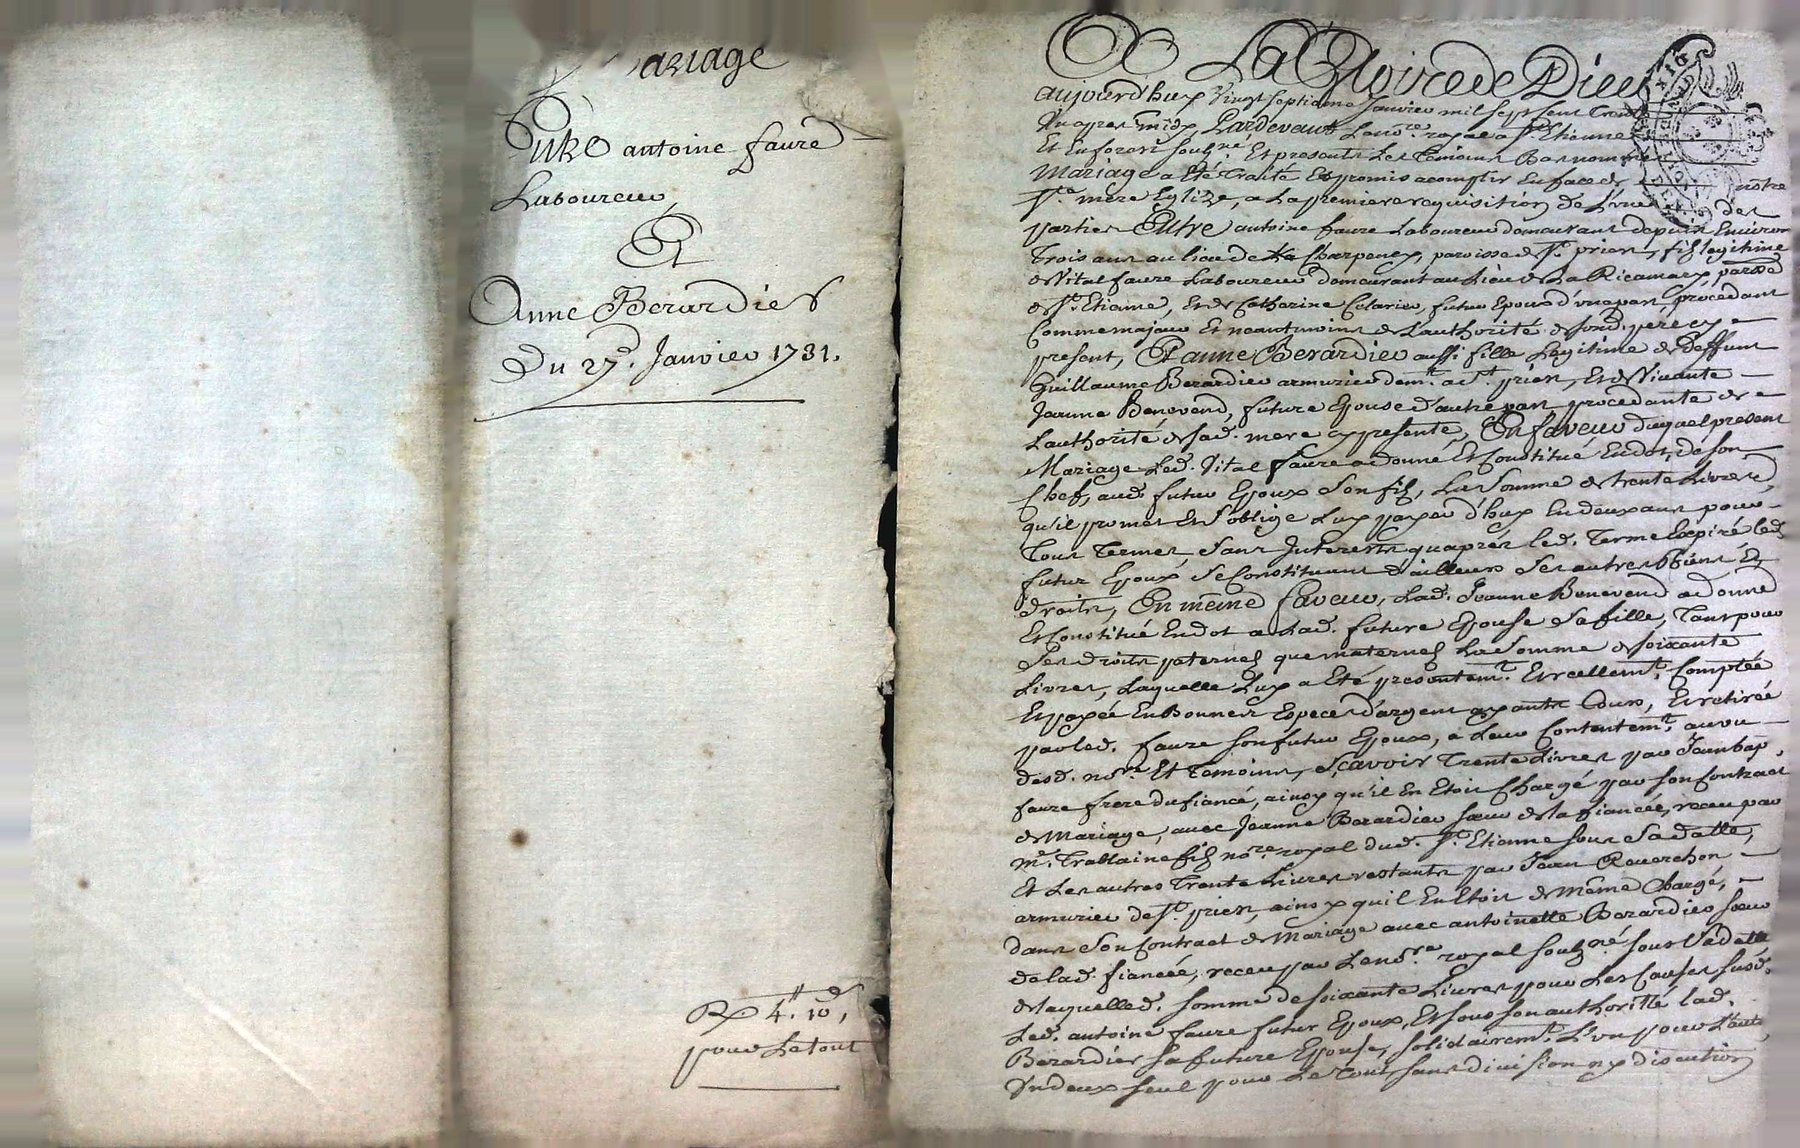 Mariage
Entre antoine faure
Laboureur
Et
Anne Berardier
Du 27e. Janvier 1731.
Rx 4.# 10.s
pour Le tout
A La Gloire de Dieu
aujourd'huy vingt septieme Janvier mil sept cent Trente
Un apres midy, Pardevant Le nore. royal a St. Etienne
Et En forest soulzné. Et presents Les Temoins Bas nommés
Mariage a Eté Traité Et promis acomplir En face de notre
Ste. mere Eglize, a La premiere requisition de L'une des
parties Entre antoine faure Laboureur demeurant depuis Environ
Trois ans au lieu de La Charpeney, paroisse de St. priest, fils legitime
de Vital faure Laboureur demeurant au Lieu de La Ricamary, parsse.
de St. Etienne, Et de Catherine Celarier, futur Epoux d'une part, procedant
Comme majeur Et neantmoins de L'authorité de sond. pere cy
present, Et anne Berardier aussi fille Legitime de deffunt
Guillaume Berardier armurier demt. a St. priest, Et de Vivante
Jeanne Benevend, future Epouse d'autre part procedante de
L'authorité de sad. mere cy presente, En faveur duquel present
Mariage Led. Vital faure a donné Et Constitué En dot, de son
Chef, aud. futur Epoux son fils, La somme de trente Livres,
qu'il promet Et s'oblige Luy payer d'huy En deux ans pour
Tous Termes, sans Interests qu'aprés led. Terme Expiré led.
futur Epoux se Constituant d'ailleurs ses autres Biens Et
droits, En même faveur, Lad. Jeanne Benevend a donné
Et Constitué En dot a Lad. future Epouse sa fille, Tant pour
ses droits paternels que maternels La somme de soixante
Livres, Laquelle Luy a Eté presentemt. Et reellemt. Comptée
Et payée En Bonnes Especes d'argent ayants Cours, Et retirée
par led. faure son futur Epoux, a Leur Contentemt. au vu
desd. nore. Et Temoins, sçavoir Trente Livres par Jean bap.
faure frere du fiancé, ainsy qu'il En Etoit Chargé par son Contract
de Mariage, avec Jeanne Berardier soeur de la fiancée, receu par
me. Trablaine fils nore. royal dud. St. Etienne sous sa datte,
Et Les autres Trente Livres restants par Jean Reverchon
armurier de St. priest, ainsy qu'il En Etoit de même Chargé,
dans son Contract de Mariage avec antoinette Berardier soeur
de lad. fiancée, receu par Le nore. royal soulzné. sous sa datte
de laquelle d. somme de soixante Livres pour Les Causes susd.
Led. antoine faure futur Epoux, Et sous son authorité lad.
Berardier sa future Epouse, solidairemt. L'un pour L'autre
Un deux seul pour Le Tout sans division ny discution